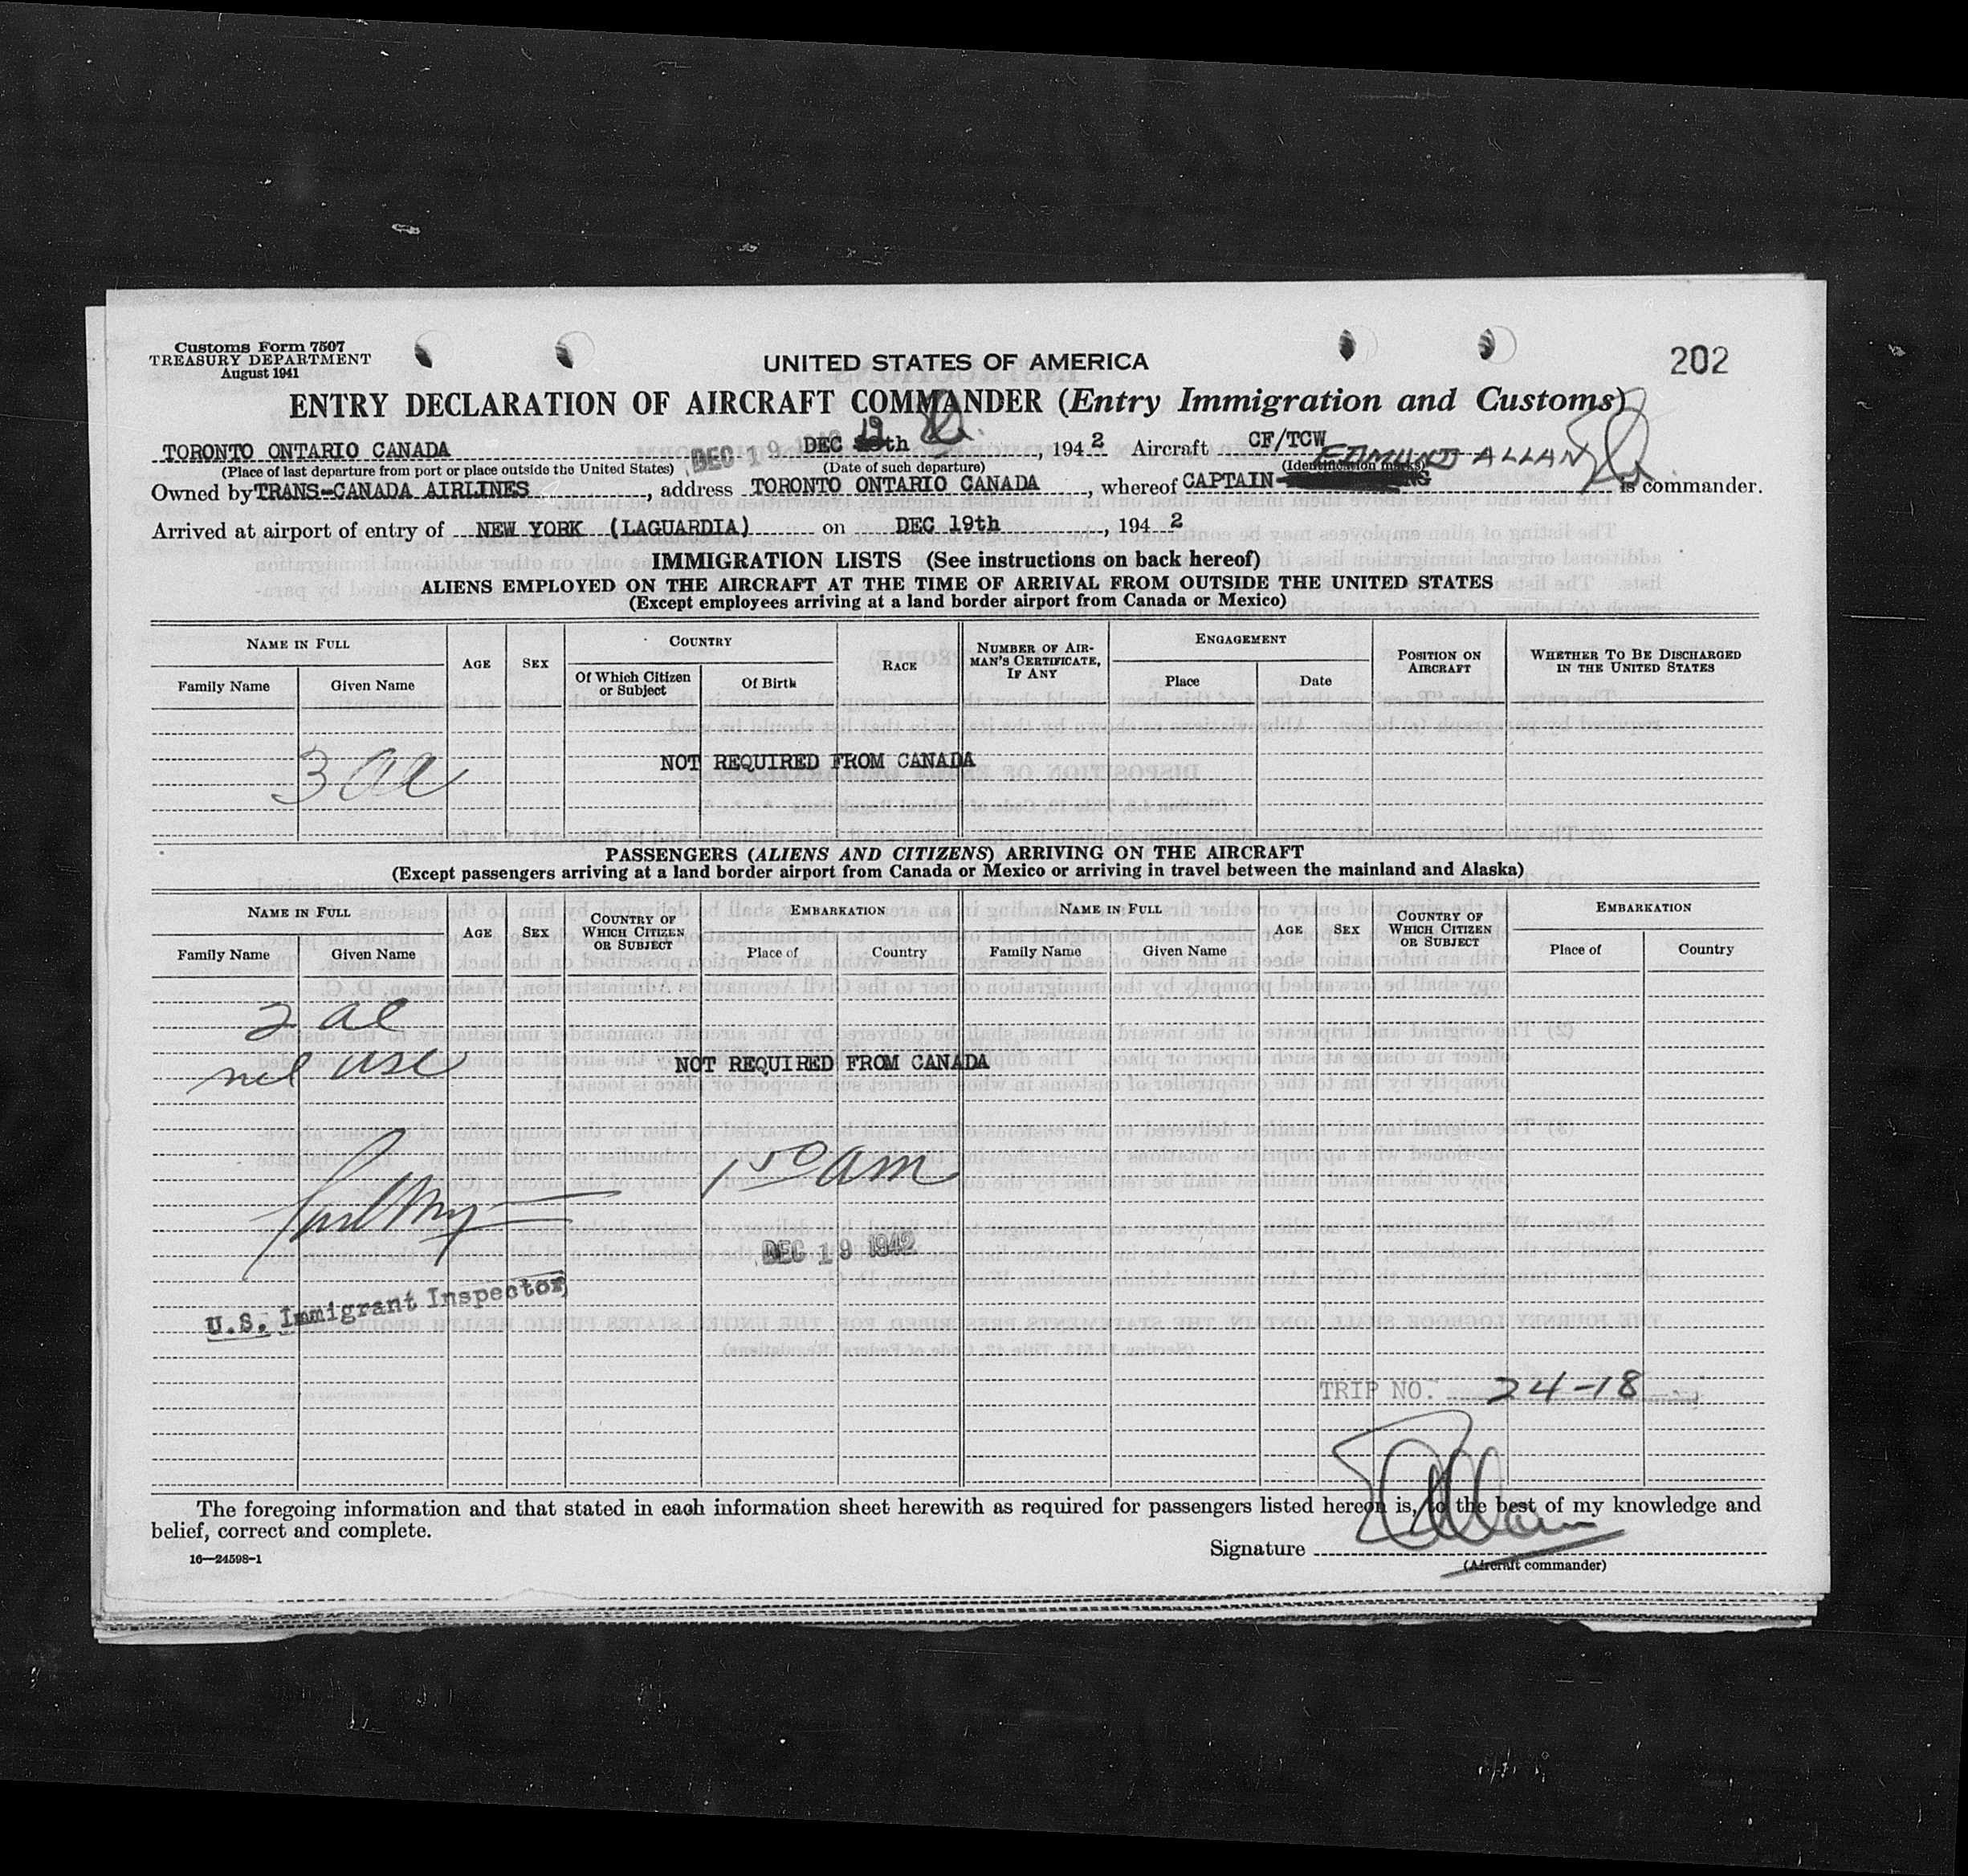 Customs Form 7507
TREASURY DEPARTMENT
August 1941
UNITED STATES OF AMERICA
202
ENTRY DECLARATION OF AIRCRAFT COMMANDER (Entry Immigration and Customs)
TORONTO ONTARIO CANADA DEC 19 DEC 19 th, 1942 Aircraft CF/TCW
(Place of last departure from port or place outside the United States) (Date of such departure) (Identification marks) EDMUND ALLAN
Owned by TRANS-CANADA AIRLINES, address TORONTO ONTARIO CANADA, whereof CAPTAIN is commander.
Arrived at airport of entry of NEW YORK (LAGUARDIA) on DEC 19th, 1942
IMMIGRATION LISTS (See instructions on back hereof)
ALIENS EMPLOYED ON THE AIRCRAFT AT THE TIME OF ARRIVAL FROM OUTSIDE THE UNITED STATES
(Except employees arriving at a land border airport from Canada or Mexico)
NAME IN FULL AGE SEX COUNTRY RACE NUMBER OF AIRMAN'S CERTIFICATE, IF ANY ENGAGEMENT POSITION ON AIRCRAFT WHETHER TO BE DISCHARGED IN THE UNITED STATES
Family Name Given Name Of Which Citizen or Subject Of Birth Place Date
NOT REQUIRED FROM CANADA
PASSENGERS (ALIENS AND CITIZENS) ARRIVING ON THE AIRCRAFT
(Except passengers arriving at a land border airport from Canada or Mexico or arriving in travel between the mainland and Alaska)
NAME IN FULL AGE SEX COUNTRY OF WHICH CITIZEN OR SUBJECT EMBARKATION NAME IN FULL AGE SEX COUNTRY OF WHICH CITIZEN OR SUBJECT EMBARKATION
Family Name Given Name Place of Country Family Name Given Name Place of Country
NOT REQUIRED FROM CANADA
1 50 am
DEC 19 1942
U.S. Immigrant Inspector
TRIP NO. 24-18
The foregoing information and that stated in each information sheet herewith as required for passengers listed hereon is, to the best of my knowledge and
belief, correct and complete.
16—24598-1
Signature
(Aircraft commander)